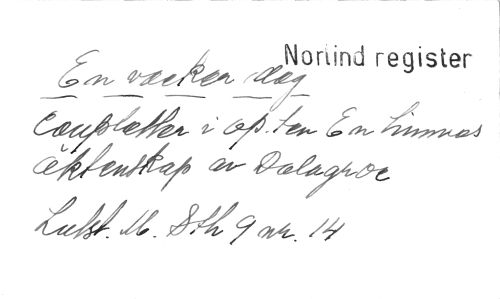 Norlind register
En vacker dag
Coupletter i op.ten En timmas
äktenskap av Dalayrac
Lulst. M. Sth 9 nr. 14